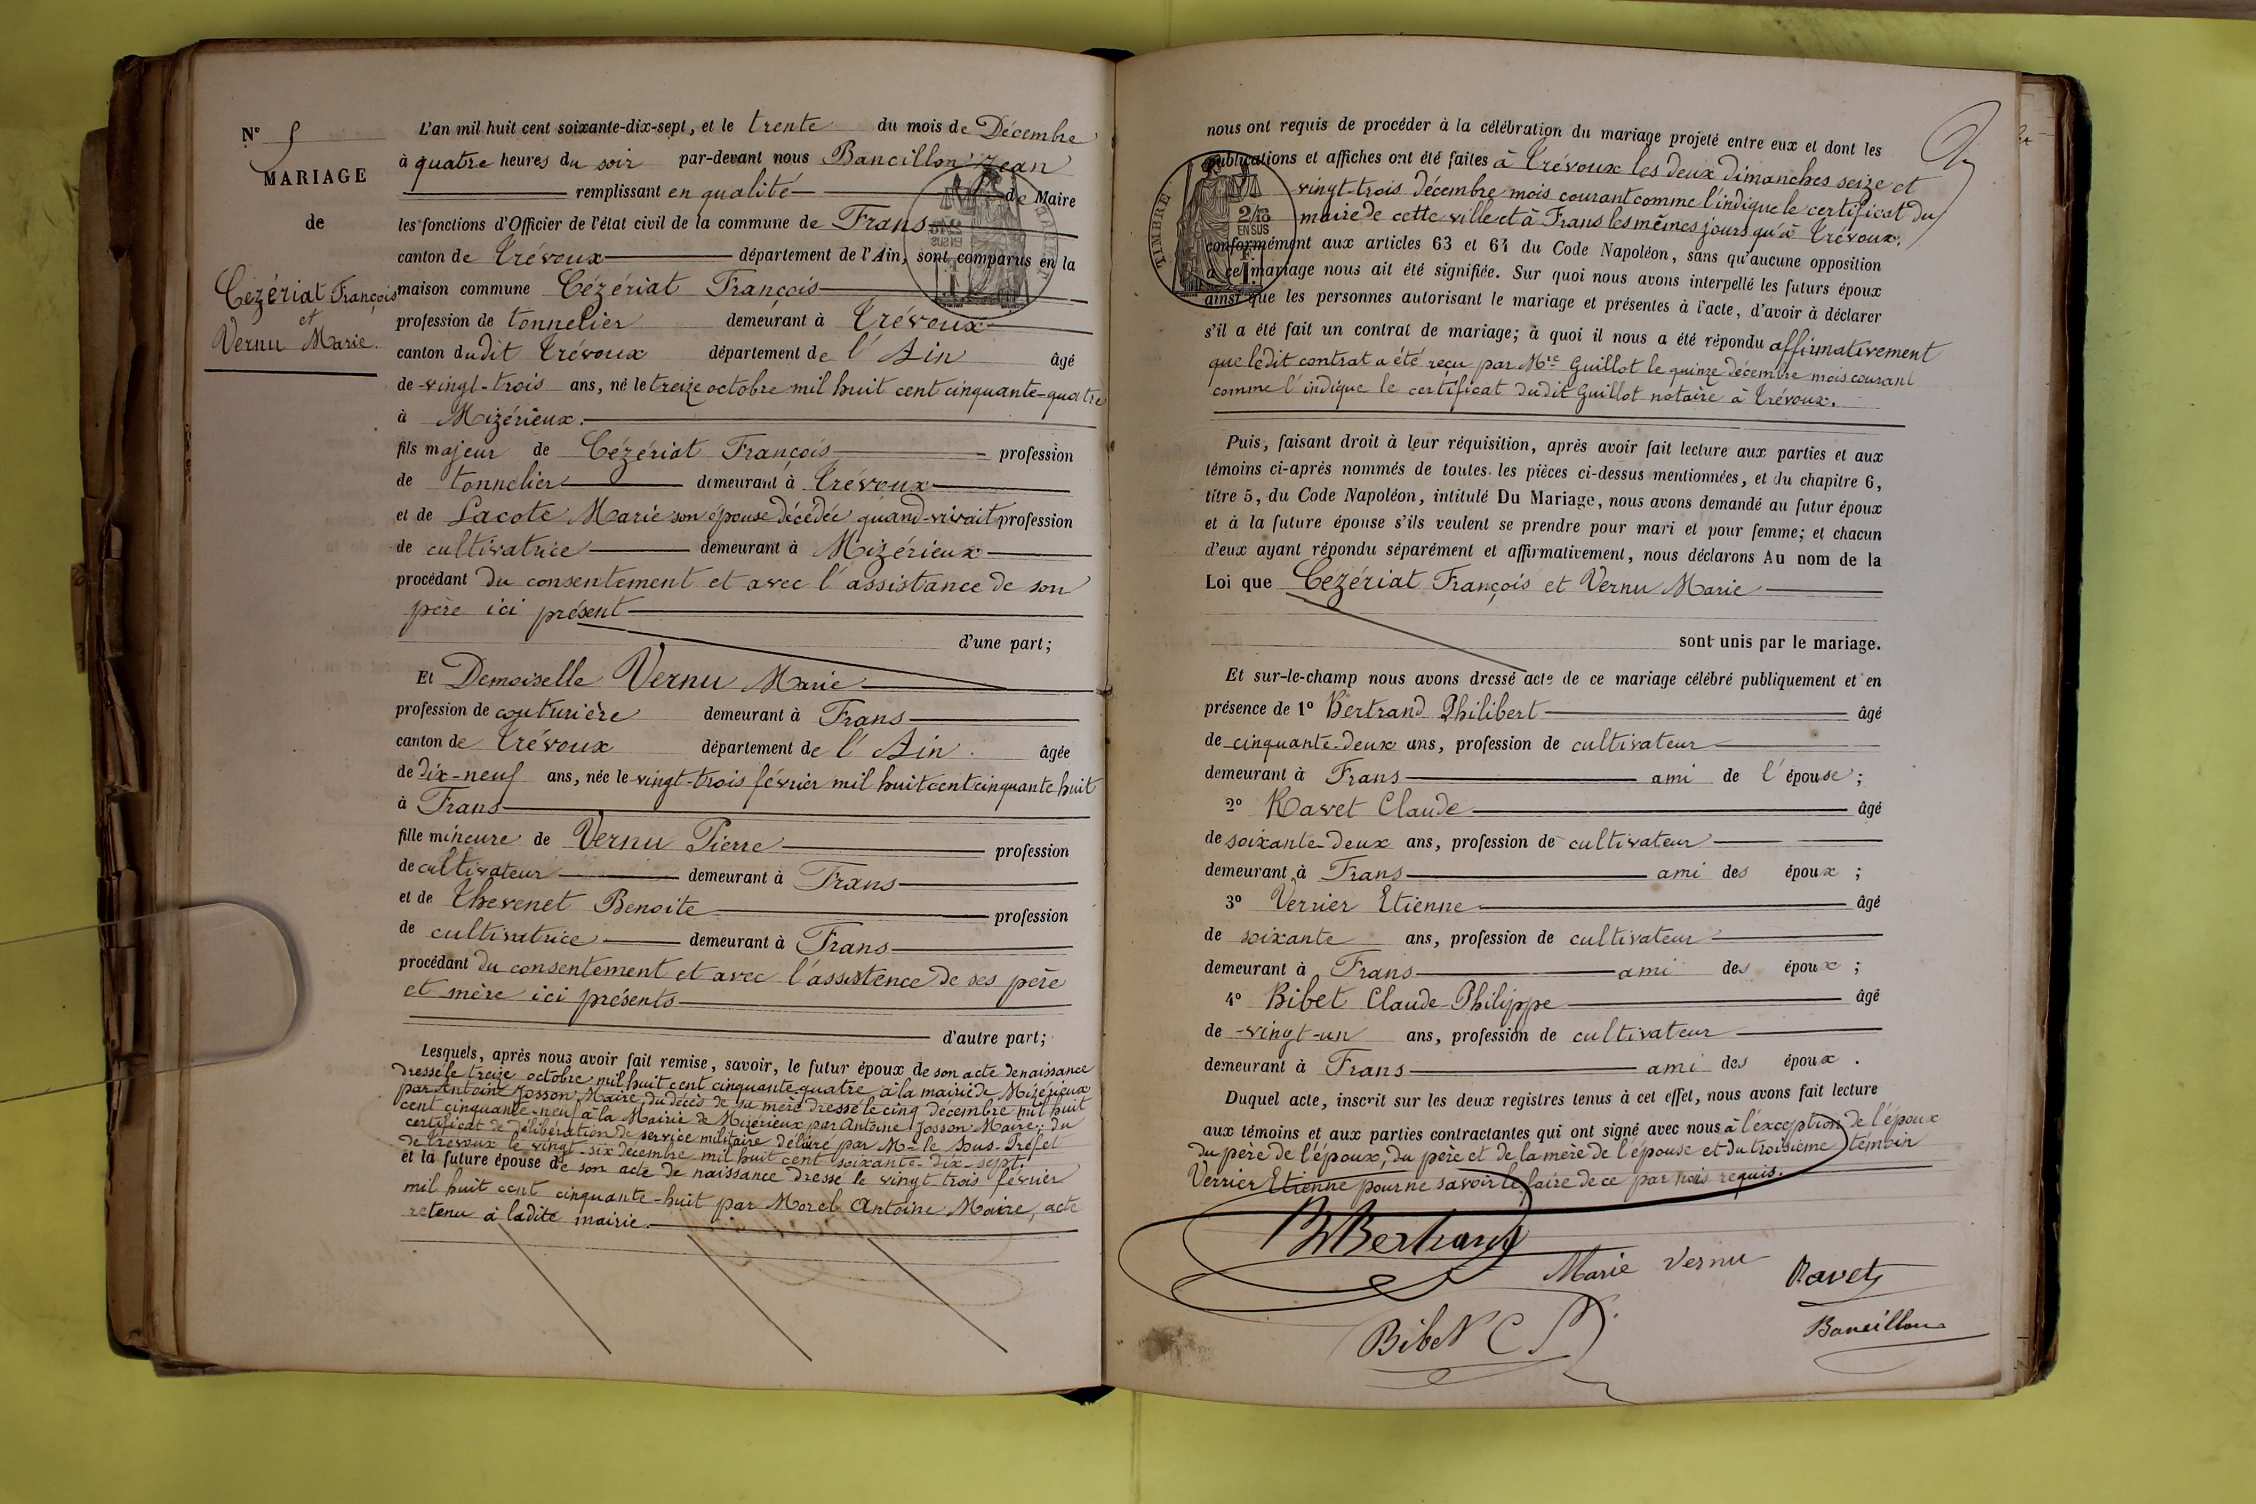 N° 5
MARIAGE
de
Cézériat François
et
Vernu Marie.
L'an mil huit cent soixante-dix-sept, et le trente du mois de Décembre
à quatre heures du soir par-devant nous Bancillon Jean
remplissant en qualité de Maire
les fonctions d'Officier de l'état civil de la commune de Frans
canton de Trévoux département de l'Ain, sont comparus en la
maison commune Cézériat François
profession de tonnelier demeurant à Trévoux
canton dudit Trévoux département de l'Ain âgé
de vingt-trois ans, né le treize octobre mil huit cent cinquante-quatre
à Mizérieux.
fils majeur de Cézériat François profession
de tonnelier demeurant à Trévoux
et de Lacote Marie son épouse décédée quand vivait profession
de cultivatrice demeurant à Mizérieux
procédant du consentement et avec l'assistance de son
père ici présent
d'une part;
Et Demoiselle Vernu Marie
profession de couturière demeurant à Frans
canton de Trévoux département de l'Ain. âgée
de dix-neuf ans, née le vingt-trois février mil huit cent cinquante huit
à Frans
fille mineure de Vernu Pierre profession
de cultivateur demeurant à Frans
et de Thevenet Benoite profession
de cultivatrice demeurant à Frans
procédant du consentement et avec l'assistence de ses père
et mère ici présents
d'autre part;
Lesquels, après nous avoir fait remise, savoir, le futur époux de son acte de naissance
dressé le treize octobre mil huit cent cinquante quatre à la mairie de Mizérieux
par Antoine Josson Maire, du décès de sa mère dressé le cinq décembre mil huit
cent cinquante-neuf à la Mairie de Mizérieux par Antoine Josson Maire; du
certificat de délibération de service militaire délivré par Mr le Sous-Préfet
de Trévoux le vingt-six décembre mil huit cent soixante-dix-sept.
et la future épouse de son acte de naissance dressé le vingt trois février
mil huit cent cinquante-huit par Morel Antoine Maire, acte
retenu à ladite mairie.
nous ont requis de procéder à la célébration du mariage projeté entre eux et dont les
publications et affiches ont été faites à Trévoux les deux dimanches seize et
vingt-trois décembre mois courant comme l'indique le certificat du
maire de cette ville et à Frans les mêmes jours qu'à Trévoux.
TIMBRE
2/10
EN SUS
conformément aux articles 63 et 64 du Code Napoléon, sans qu'aucune opposition
à ce mariage nous ait été signifiée. Sur quoi nous avons interpellé les futurs époux
ainsi que les personnes autorisant le mariage et présentes à l'acte, d'avoir à déclarer
s'il a été fait un contrat de mariage; à quoi il nous a été répondu affirmativement
que ledit contrat a été reçu par Mre Guillot le quinze décembre mois courant
comme l'indique le certificat dudit Guillot notaire à Trévoux.
Puis, faisant droit à leur réquisition, après avoir fait lecture aux parties et aux
témoins ci-après nommés de toutes les pièces ci-dessus mentionnées, et du chapitre 6,
titre 5, du Code Napoléon, intitulé Du Mariage, nous avons demandé au futur époux
et à la future épouse s'ils veulent se prendre pour mari et pour femme; et chacun
d'eux ayant répondu séparément et affirmativement, nous déclarons Au nom de la
Loi que Cézériat François et Vernu Marie
sont unis par le mariage.
Et sur-le-champ nous avons dressé acte de ce mariage célébré publiquement et en
présence de 1° Bertrand Philibert âgé
de cinquante-deux ans, profession de cultivateur
demeurant à Frans ami de l'épouse;
2° Ravet Claude âgé
de soixante-deux ans, profession de cultivateur
demeurant à Frans ami des époux;
3° Verrier Etienne âgé
de soixante ans, profession de cultivateur
demeurant à Frans ami des époux;
4° Bibet Claude Philippe âgé
de vingt-un ans, profession de cultivateur
demeurant à Frans ami des époux.
Duquel acte, inscrit sur les deux registres tenus à cet effet, nous avons fait lecture
aux témoins et aux parties contractantes qui ont signé avec nous à l'exception de l'époux
du père de l'époux, du père et de la mère de l'épouse et du troisième témoin
Verrier Etienne pour ne savoir le faire de ce par nous requis.
Bertrand
Marie Vernu
Ravet
Bibet C P
Bancillon